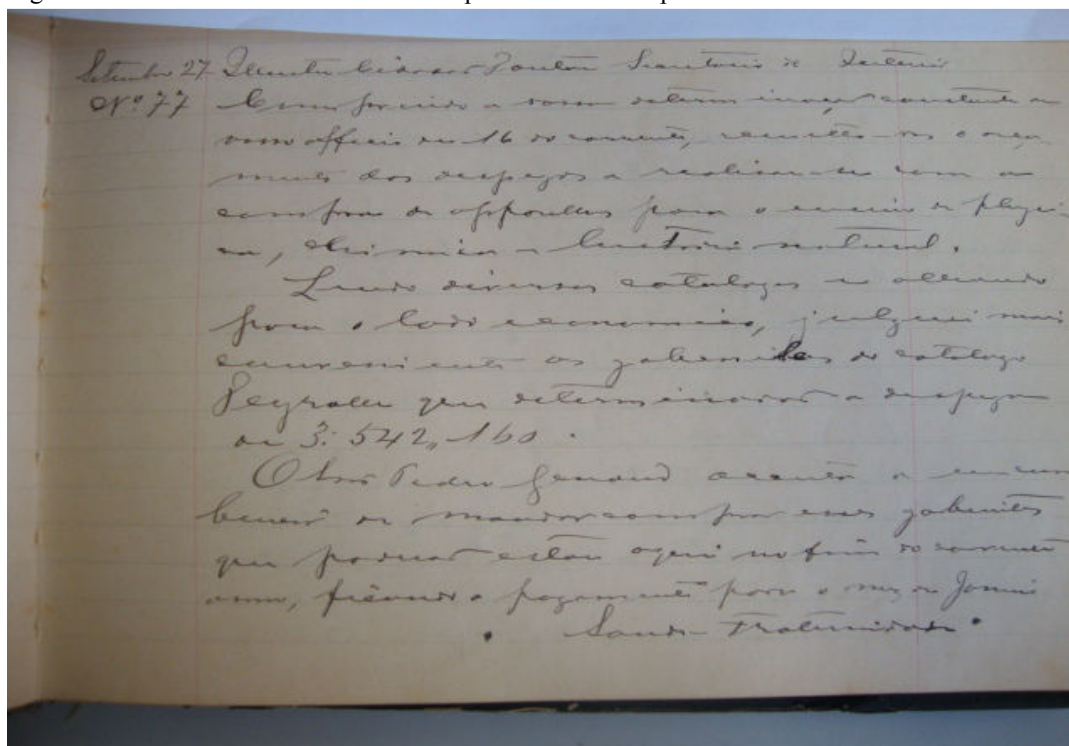 Setembro 27 Illustre Cidadão Doutor Secretario do Interior
Nº 77 Cumprindo a vossa determinação constante do
vosso officio de 16 do corrente, remetto-vos o orça-
mento das despezas a realisar-se com a
compra de apparelhos para o ensino de physi-
ca, chimica e historia natural.
Lendo diversos catalogos e olhando
para o lado economico, julguei mais
conveniente os gabinetes do catalogo
que determinarão a despeza
de 3:542,160.
O Snr Pedro acceita a incum
bencia de mandar comprar esses gabinetes
que poderão estar aqui no fim do corrente
anno, ficando o pagamento para o mez de
Saude e Fraternidade